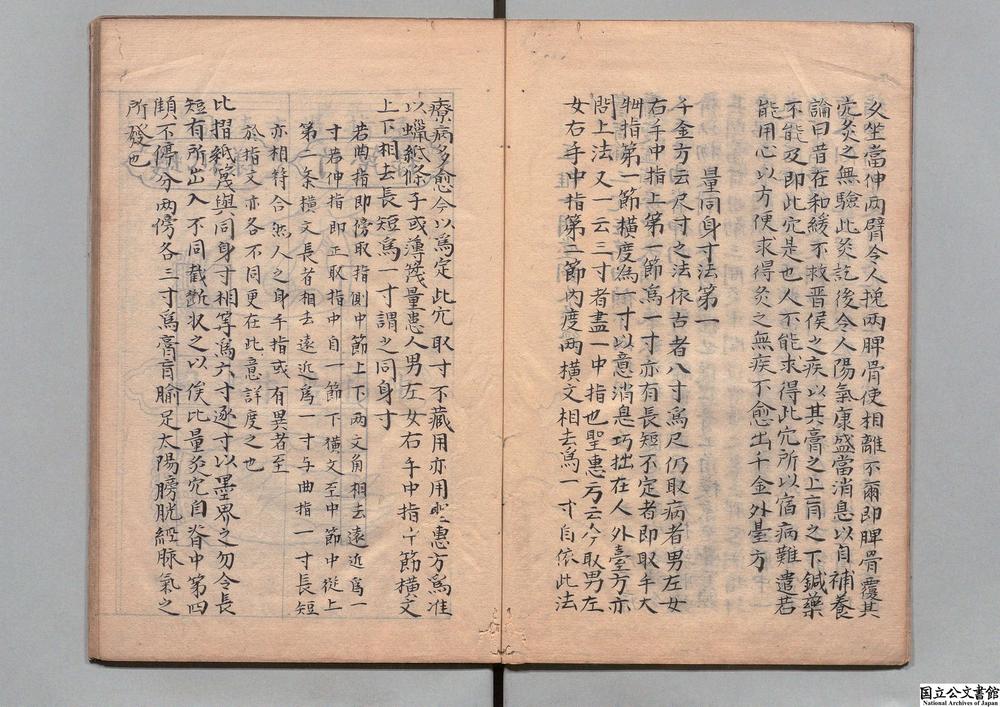 又坐當伸両臂令人挽两脾骨使相離不爾即脾骨覆其
穴灸之無驗此灸訖後令人陽氣康盛當消息以自補養
論曰昔在和緩不救晋侯之疾以其膏之上肓之下鍼藥
不能及即此穴是也人不能求得此穴所以宿病難遣若
能用心以方便求得灸之無疾不愈出千金外臺方
量同身寸法第一
千金方云尺寸之法依古者八寸為尺仍取病者男左女
右手中指上第一節為一寸亦有長短不定者即取手大
拇指第一節橫度為一寸以意消息巧拙在人外臺方亦
問上法又一云三寸者盡一中指也聖惠方云今取男左
女右手中指第二節内度两橫文相去為一寸自依此法
療病多愈今以為定此穴取寸不藏用亦用聖惠方為准
以蠟紙條子或薄篾量患人男左女右手中指中節橫文
上下相去長短為一寸謂之同身寸
若曲指即傍取指側中節上下两文角相去遠近為一
寸若伸指即正取指中自一節下橫文至中節中從上
第一条橫文長者相去遠近為一寸与曲指一寸長短
亦相符合然人之身手指或有異者至
於指文亦各不同更在此意詳度之也
比摺紙篾與同身寸相等為六寸逐寸以墨界之勿令長
短有所出入不同截斷状之以俟比量灸穴自脊中第四
顀不停分两傍各三寸為膏肓腧足太陽膀胱經脉氣之
所發也
国立公文書館
National Archives of Japan